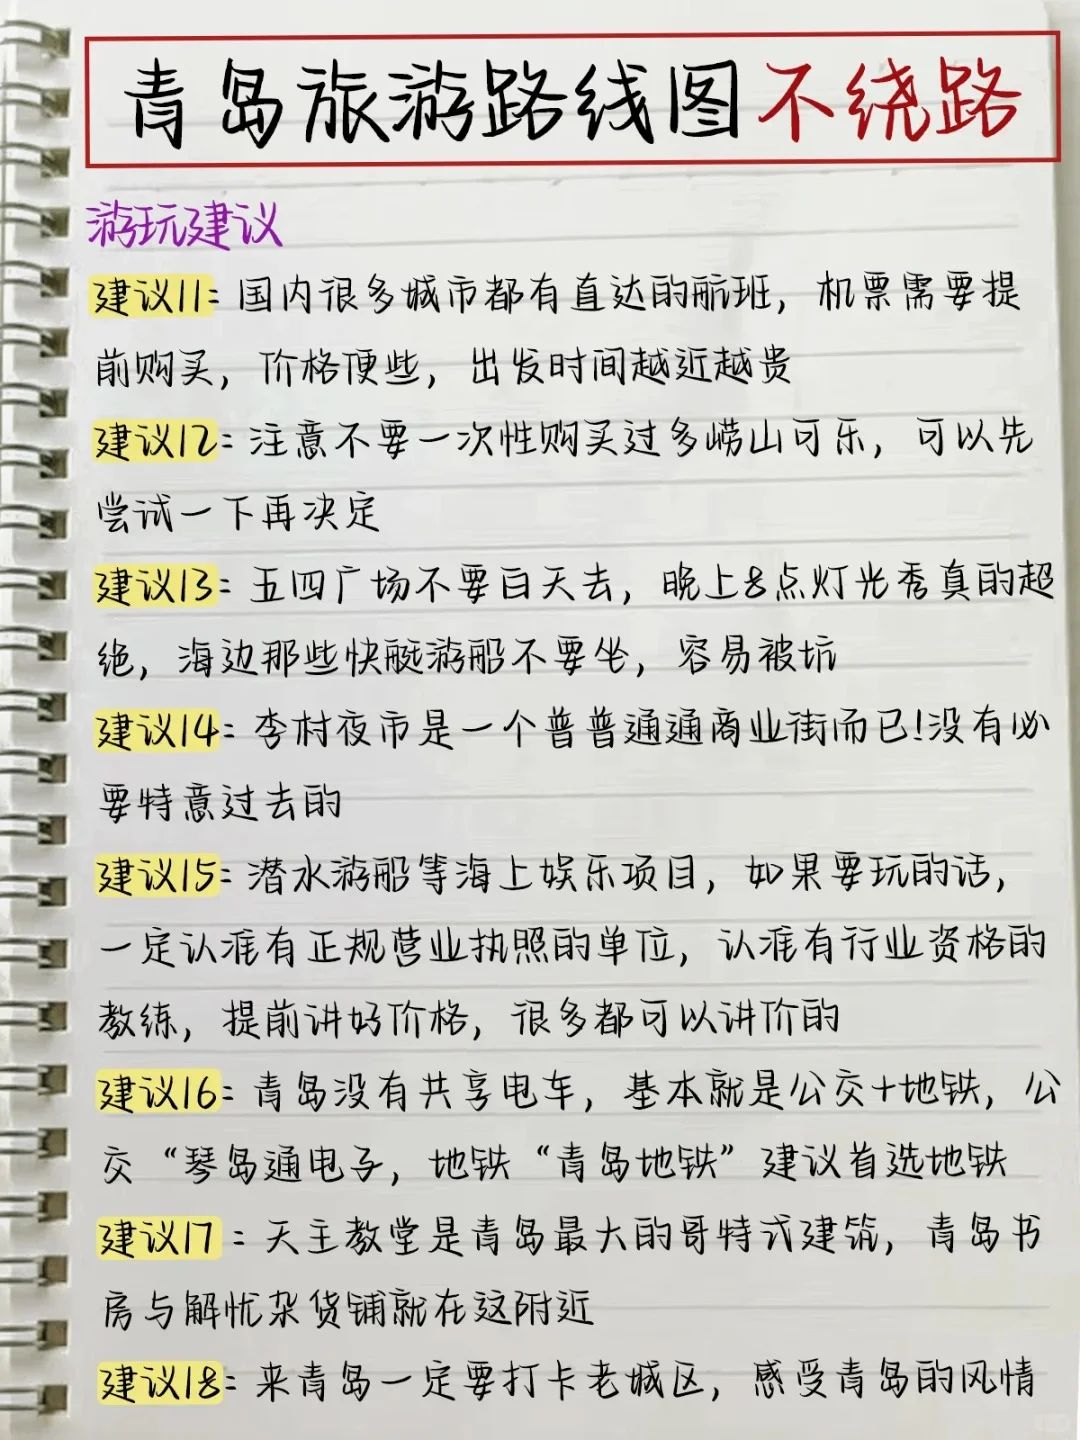 青岛旅游路线图不绕路
游玩建议
建议11：国内很多城市都有直达的航班，机票需要提
前购买，价格便些，出发时间越近越贵
建议12：注意不要一次性购买过多崂山可乐，可以先
尝试一下再决定
建议13：五四广场不要白天去，晚上8点灯光秀真的超
绝，海边那些快艇游船不要坐，容易被坑
建议14：李村夜市是一个普普通通商业街而已！没有必
要特意过去的
建议15：潜水游船等海上娱乐项目，如果要玩的话，
一定认准有正规营业执照的单位，认准有行业资格的
教练，提前讲好价格，很多都可以讲价的
建议16：青岛没有共享电车，基本就是公交+地铁，公
交“琴岛通电子，地铁“青岛地铁”建议首选地铁
建议17：天主教堂是青岛最大的哥特式建筑，青岛书
房与解忧杂货铺就在这附近
建议18：来青岛一定要打卡老城区，感受青岛的风情